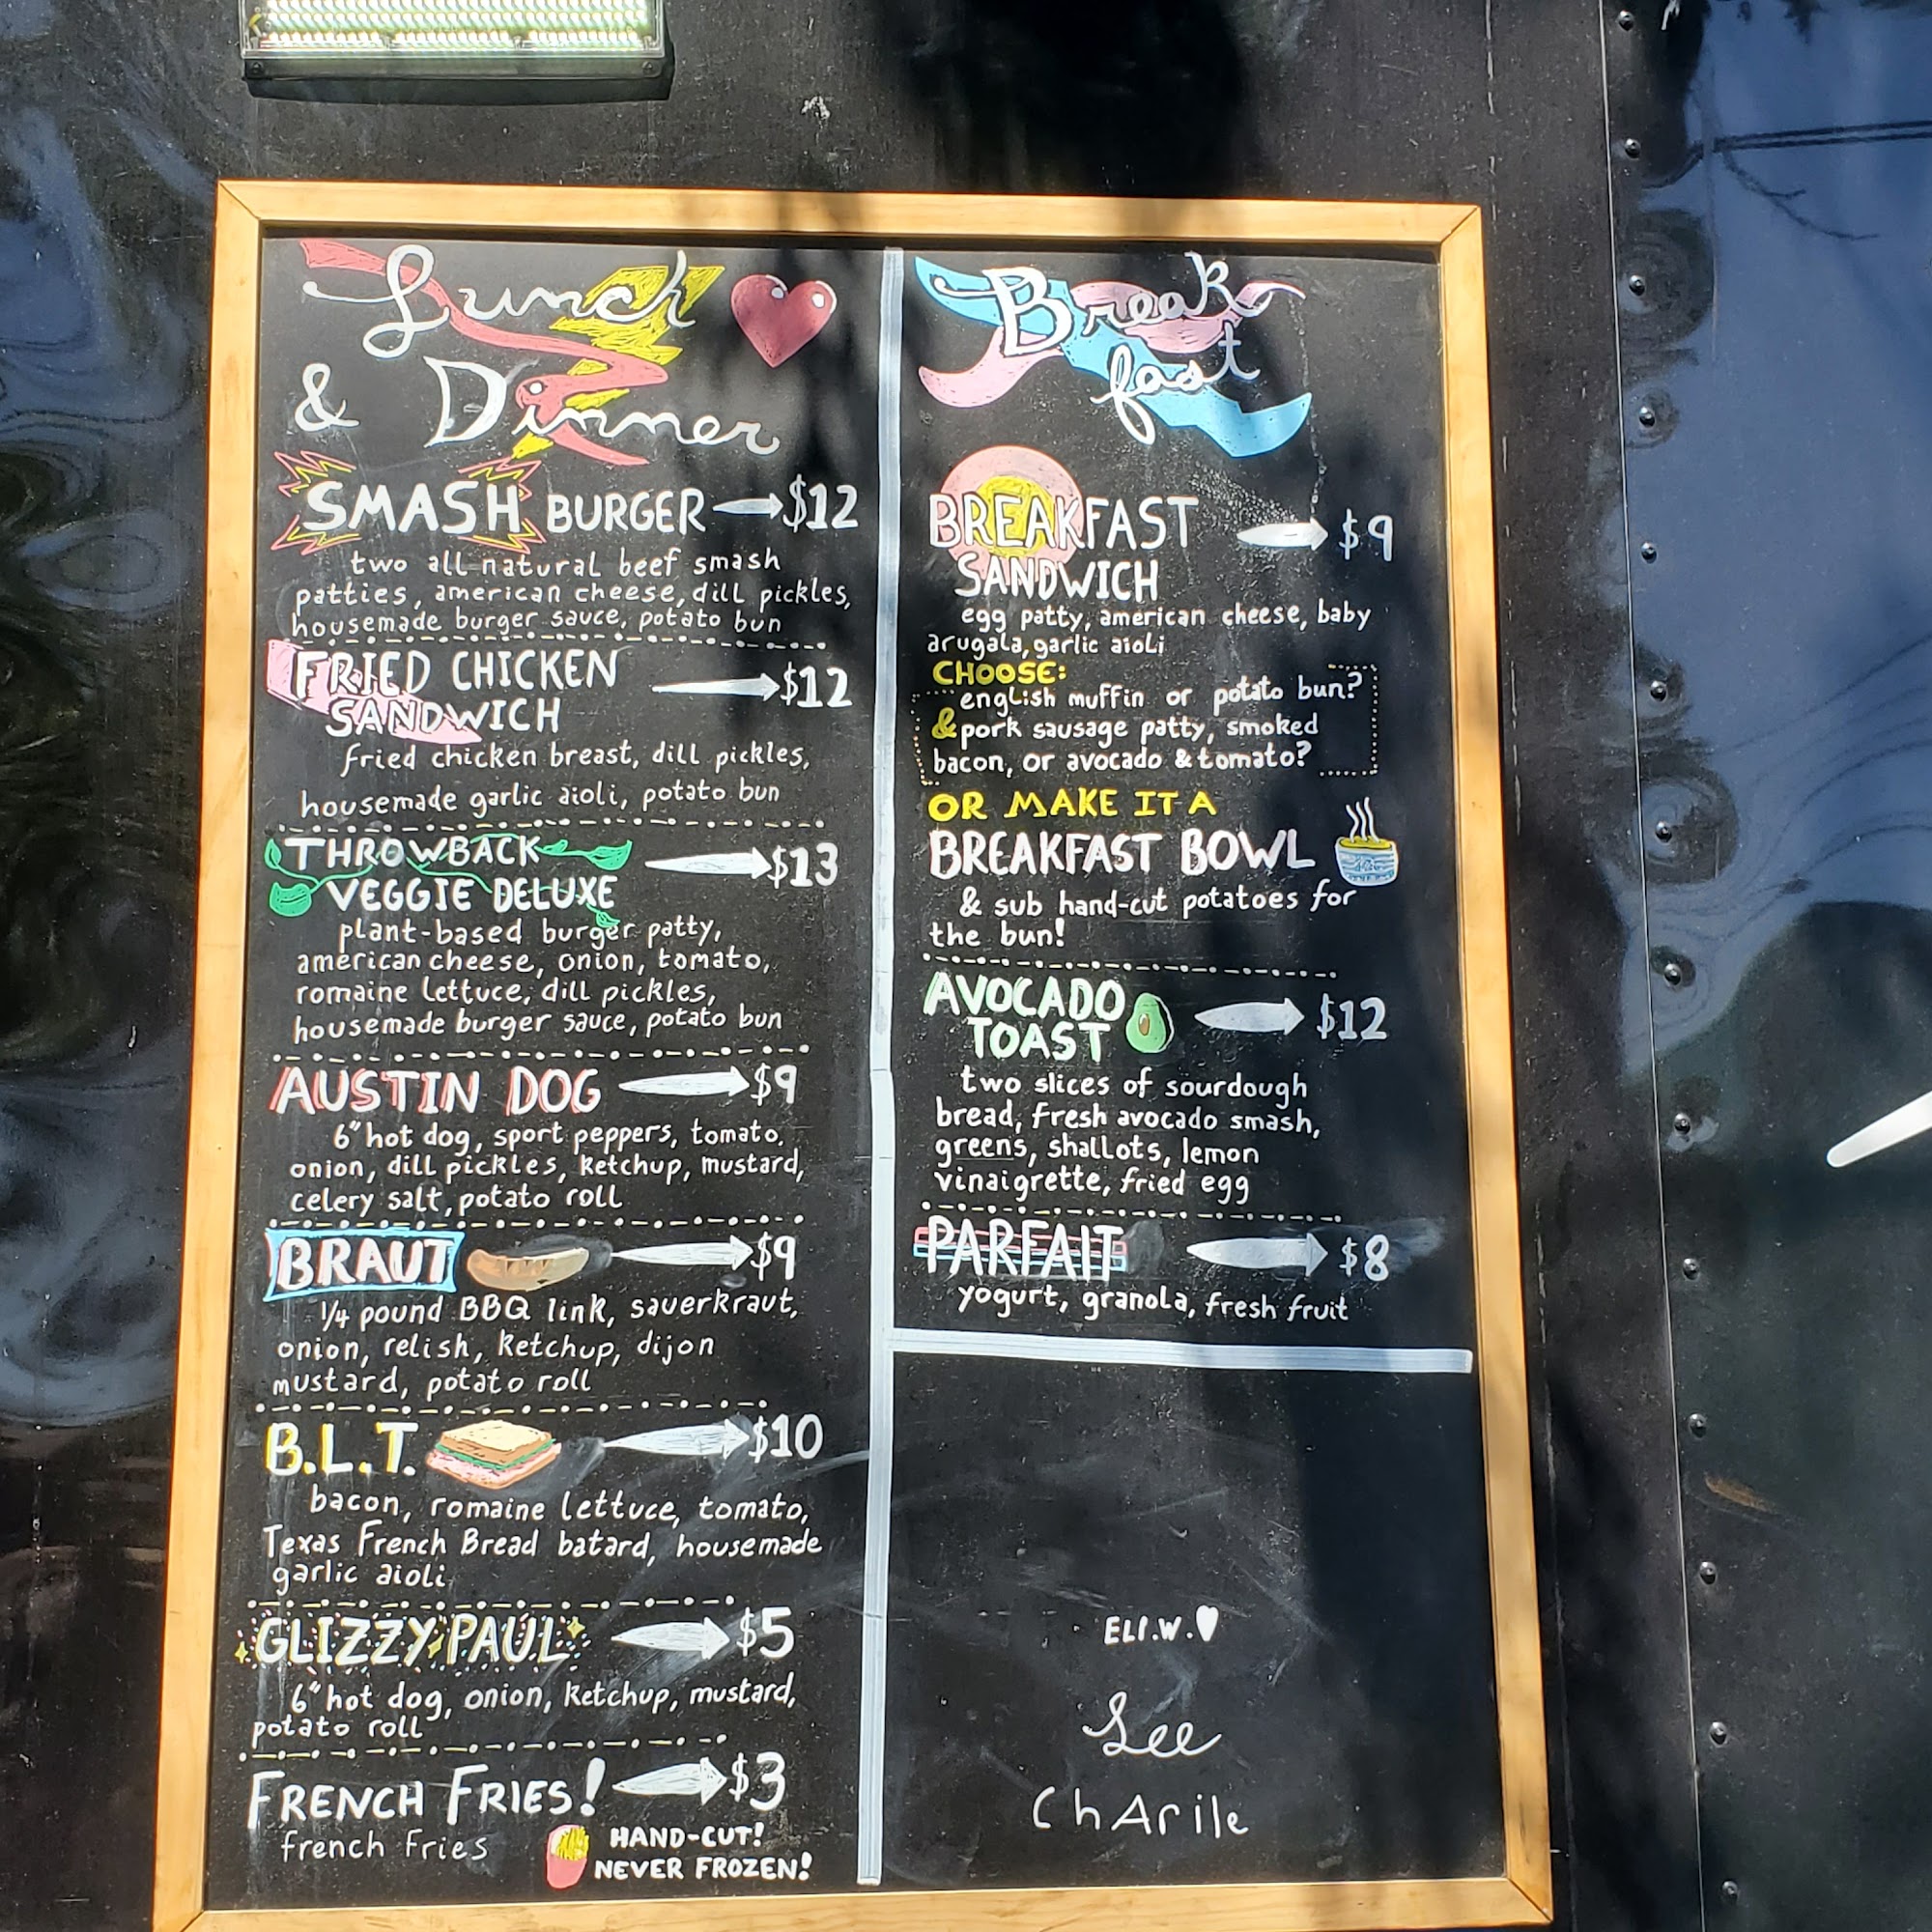 Lunch
& Dinner
SMASH BURGER $12
two all natural beef smash
patties, american cheese, dill pickles,
housemade burger sauce, potato bun
FRIED CHICKEN
SANDWICH $12
fried chicken breast, dill pickles,
housemade garlic aioli, potato bun
THROWBACK
VEGGIE DELUXE $13
plant-based burger patty,
american cheese, onion, tomato,
romaine lettuce, dill pickles,
housemade burger sauce, potato bun
AUSTIN DOG $9
6" hot dog, sport peppers, tomato,
onion, dill pickles, ketchup, mustard,
celery salt, potato roll
BRAUT $9
1/4 pound BBQ link, sauerkraut,
onion, relish, ketchup, dijon
mustard, potato roll
B.L.T. $10
bacon, romaine lettuce, tomato,
Texas French Bread batard, housemade
garlic aioli
GLIZZY PAUL $5
6" hot dog, onion, ketchup, mustard,
potato roll
FRENCH FRIES! $3
french fries
HAND-CUT!
NEVER FROZEN!
Break
fast
BREAKFAST
SANDWICH $9
egg patty, american cheese, baby
arugala, garlic aioli
CHOOSE:
english muffin or potato bun?
& pork sausage patty, smoked
bacon, or avocado & tomato?
OR MAKE IT A
BREAKFAST BOWL
& sub hand-cut potatoes for
the bun!
AVOCADO
TOAST $12
two slices of sourdough
bread, fresh avocado smash,
greens, shallots, lemon
vinaigrette, fried egg
PARFAIT $8
yogurt, granola, fresh fruit
ELI.W.
See
ChArile